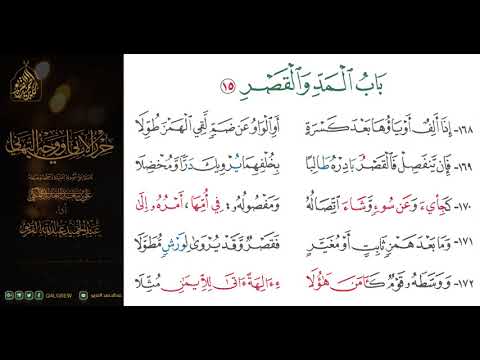 بَابُ الْمَدِّ وَالْقَصْرِ ١٥
١٦٨- إِذَا أَلِفٌ أَوْ يَاؤُهَا بَعْدَ كَسْرَةٍ أَوِ الْوَاوُ عَنْ ضَمٍّ لَقِي الْهَمْزَ طُوِّلَا
١٦٩- فَإِنْ يَنْفَصِلْ فَالْقَصْرُ بَادِرْهُ طَالِبًا بِخُلْفِهِمَا يُرْوِيكَ دَرًّا وَمُخْضَلَا
١٧٠- كَجِاْيءَ وَعَنْ سُوءٍ وَشَاءَ اتِّصَالُهُ وَمَفْصُولُهُ فِي أُمِّهَا أَمْرُهُ إِلَى
١٧١- وَمَا بَعْدَ هَمْزٍ ثَابِتٍ أَوْ مُغَيَّرٍ فَقَصْرٌ وَقَدْ يُرْوَى لِوَرْشٍ مُطَوَّلَا
١٧٢- وَوَسَّطَهُ قَوْمٌ كَآمَنَ هَؤُلَا ءِ اٰلِهَةً ءَاتَى لِلْإِيمَٰنِ مُثِّلَا
QALQREW